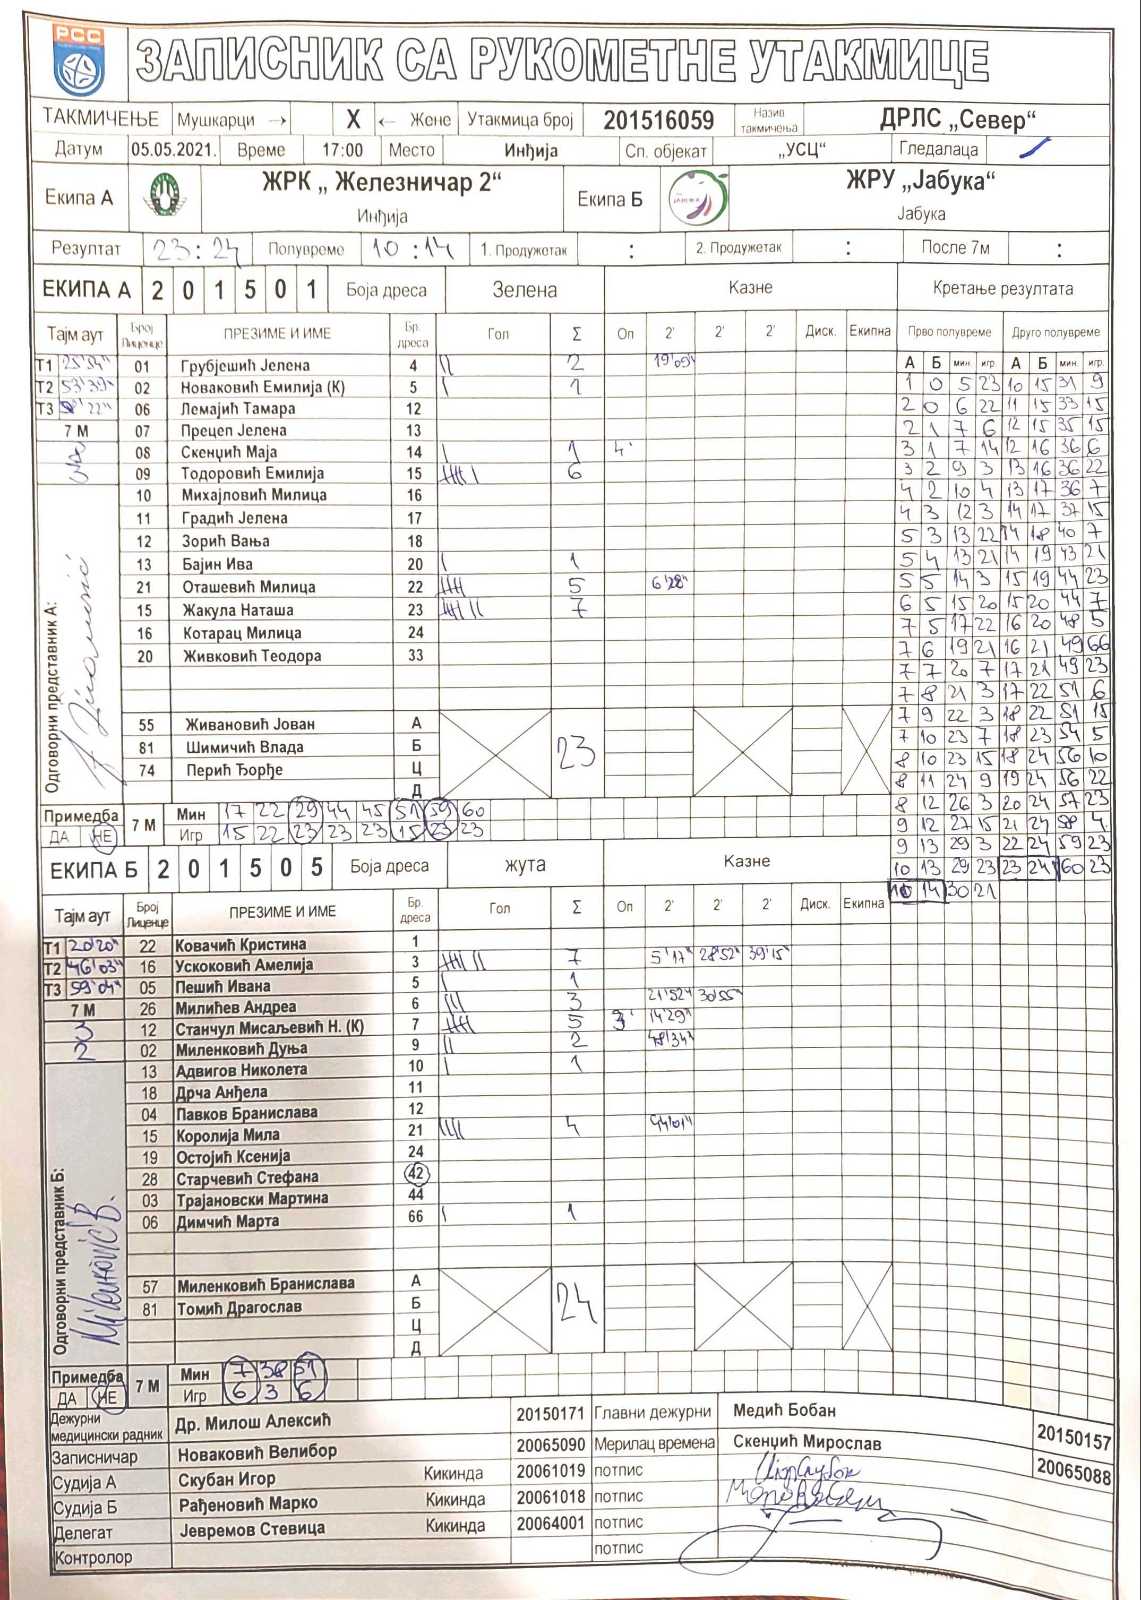 РСС
ЗАПИСНИК СА РУКОМЕТНЕ УТАКМИЦЕ
ТАКМИЧЕЊЕ Мушкарци → X ← Жене Утакмица број 201516059 Назив такмичења ДРЛС „Север“
Датум 05.05.2021. Време 17:00 Место Инђија Сп. објекат „УСЦ“ Гледалаца
Екипа А ЖРК „ Железничар 2“ Инђија Екипа Б ЖРУ „Јабука“ Јабука
Резултат 23:24 Полувреме 10:14 1. Продужетак : 2. Продужетак : После 7м :
ЕКИПА А 2 0 1 5 0 1 Боја дреса Зелена Казне Кретање резултата
Тајм аут Број Лиценце ПРЕЗИМЕ И ИМЕ Бр. дреса Гол Σ Оп 2' 2' 2' Диск. Екипна Прво полувреме Друго полувреме
А Б мин. игр А Б мин. игр.
Т1 25'54" 01 Грубјешић Јелена 4 || 2 19'09"
Т2 53'39" 02 Новаковић Емилија (К) 5 | 1
Т3 06 Лемајић Тамара 12
7 М 07 Прецеп Јелена 13
08 Скенџић Маја 14 | 1 4'
09 Тодоровић Емилија 15 |||| | 6
10 Михајловић Милица 16
11 Градић Јелена 17
12 Зорић Вања 18
13 Бајин Ива 20 | 1
21 Оташевић Милица 22 |||| 5 6'28"
15 Жакула Наташа 23 |||| || 7
16 Котарац Милица 24
20 Живковић Теодора 33
Одговорни представник А:
55 Живановић Јован А
81 Шимичић Влада Б 23
74 Перић Ђорђе Ц
Д
1 0 5 23 10 15 31 9
2 0 6 22 11 15 33 15
2 1 7 6 12 15 35 15
3 1 7 14 12 16 36 6
3 2 9 3 13 16 36 22
4 2 10 4 13 17 36 7
4 3 12 3 14 17 37 15
5 3 13 22 14 18 40 7
5 4 13 21 14 19 43 21
5 5 14 3 15 19 44 23
6 5 15 20 15 20 44 7
7 5 17 22 16 20 48 5
7 6 19 21 16 21 49 66
7 7 20 7 17 21 49 23
7 8 21 3 17 22 51 6
7 9 22 3 18 22 51 15
7 10 23 7 18 23 54 5
8 10 23 15 18 24 56 10
8 11 24 9 19 24 56 22
8 12 26 3 20 24 57 23
9 12 27 15 21 24 58 4
9 13 29 3 22 24 59 23
10 13 29 23 23 24 60 23
10 14 30 21
Примедба ДА НЕ 7 М Мин 17 22 29 44 45 51 59 60
Игр 15 22 23 23 23 15 23 23
ЕКИПА Б 2 0 1 5 0 5 Боја дреса жута Казне
Тајм аут Број Лиценце ПРЕЗИМЕ И ИМЕ Бр. дреса Гол Σ Оп 2' 2' 2' Диск. Екипна
Т1 20'20" 22 Ковачић Кристина 1
Т2 46'03" 16 Ускоковић Амелија 3 |||| || 7 5'17" 28'52" 39'15"
Т3 59'04" 05 Пешић Ивана 5 | 1
7 М 26 Милићев Андреа 6 ||| 3 21'52" 30'55"
12 Станчул Мисаљевић Н. (К) 7 |||| 5 3' 14'29"
02 Миленковић Дуња 9 || 2 48'34"
13 Адвигов Николета 10 | 1
18 Дрча Анђела 11
04 Павков Бранислава 12
15 Королија Мила 21 |||| 4 44'01"
19 Остојић Ксенија 24
28 Старчевић Стефана 42
03 Трајановски Мартина 44
06 Димчић Марта 66 | 1
Одговорни представник Б:
57 Миленковић Бранислава А
81 Томић Драгослав Б 24
Ц
Д
Примедба ДА НЕ 7 М Мин 7 38 51
Игр 6 3 6
Дежурни медицински радник Др. Милош Алексић 20150171 Главни дежурни Медић Бобан 20150157
Записничар Новаковић Велибор 20065090 Мерилац времена Скенџић Мирослав 20065088
Судија А Скубан Игор Кикинда 20061019 потпис
Судија Б Рађеновић Марко Кикинда 20061018 потпис
Делегат Јевремов Стевица Кикинда 20064001 потпис
Контролор потпис